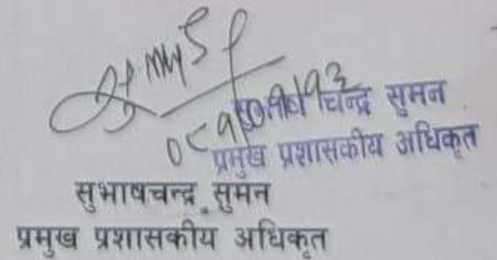 चन्द्र सुमन
प्रमुख प्रशासकीय अधिकृत
सुभाषचन्द्र सुमन
प्रमुख प्रशासकीय अधिकृत